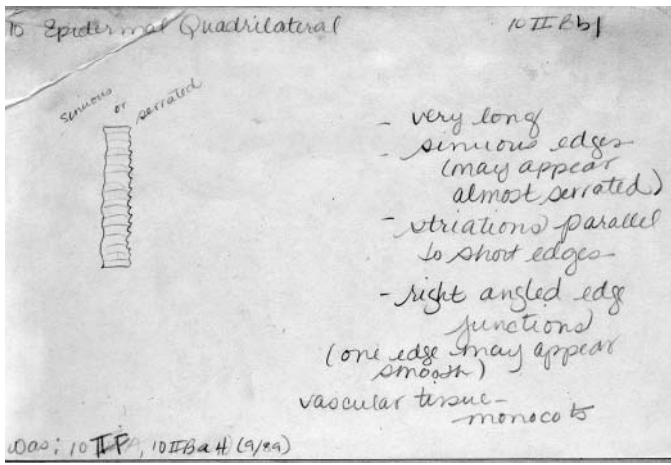 10 Epidermal Quadrilateral
10 II B b1
sinuous or serrated
- very long
- sinuous edges
(may appear
almost serrated)
- striations parallel
to short edges
- right angled edge
junctions
(one edge may appear
smooth)
vascular tissue -
monocots
was: 10 II P, 10 II B a 4 (9/89)